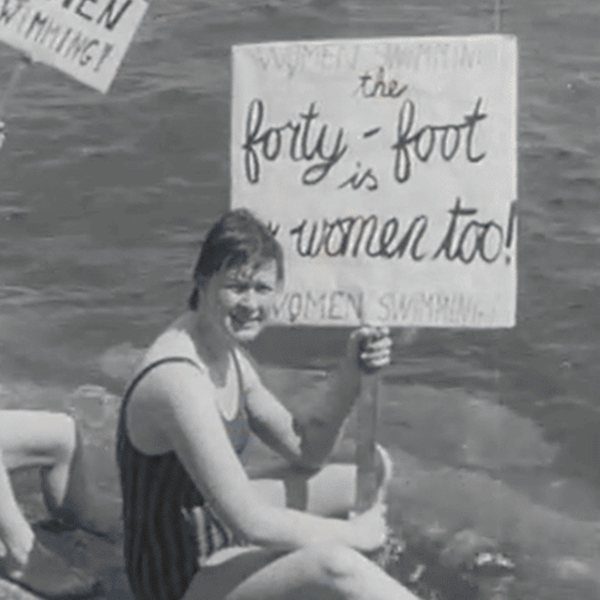 SWIMMING!
WOMEN SWIMMING
the
forty - foot
is
women too!
WOMEN SWIMMING